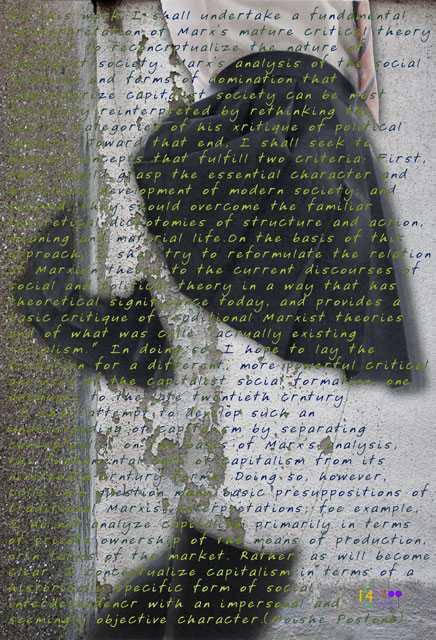 In this work, I shall undertake a fundamental
of Marx's mature critical theory
to reconcrptualize the nature of
society. Marx's analysis of the social
and forms of domination that
capitalist society can be most
reinterpreted by rethinking the
categories of his xritique of political
Toward that end, I shall seek to
concepts that fulfill two criteria: First,
grasp the essential character and
development of modern society; and
should overcome the familiar
dichotomies of structure and action,
meaning and material life.On the basis of this
approach, I shall try to reformulate the relation
Marxian theory to the current discourses of
social and political theory in a way that has
theoretical significance today, and provides a
basic critique of traditional Marxist theories
and of what was called "actually existing
socialism." In doing so, I hope to lay the
for a different, more powerful critical
the capitalist social formation, one
to the late twentieth crntury
attempt to develop such an
understanding of capitalism by separating
on the basis of Marx's analysis,
the fundamental core of capitalism from its
century forms. Doing so, however,
question many basic presuppositions of
traditional Marxist interpretations; foe example,
I do not analyze capitalism primarily in terms
of private ownership of the means of production,
terms of the market. Rather, as will become
clear, I conceptualize capitalism in terms of a
historically specific form of social
with an impersonal and
seemingly objective character.(Moishe Postone)
14